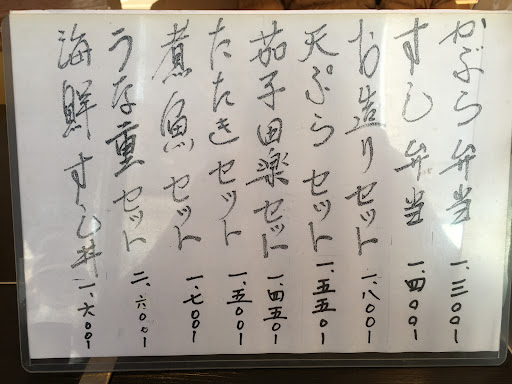 かぶら弁当 一、三〇〇ー
すし弁当 一、四〇〇ー
お造りセット 一、八〇〇ー
天ぷらセット 一、五五〇ー
茄子田楽セット 一、四五〇ー
たたきセット 一、五〇〇ー
煮魚セット 一、七〇〇ー
うな重セット 二、六〇〇ー
海鮮すし丼 一、六〇〇ー